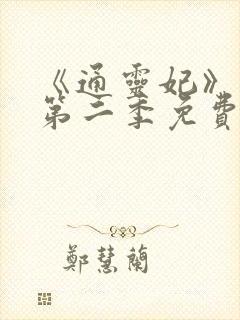 《通靈妃》
第二季免費
鄭慧蘭